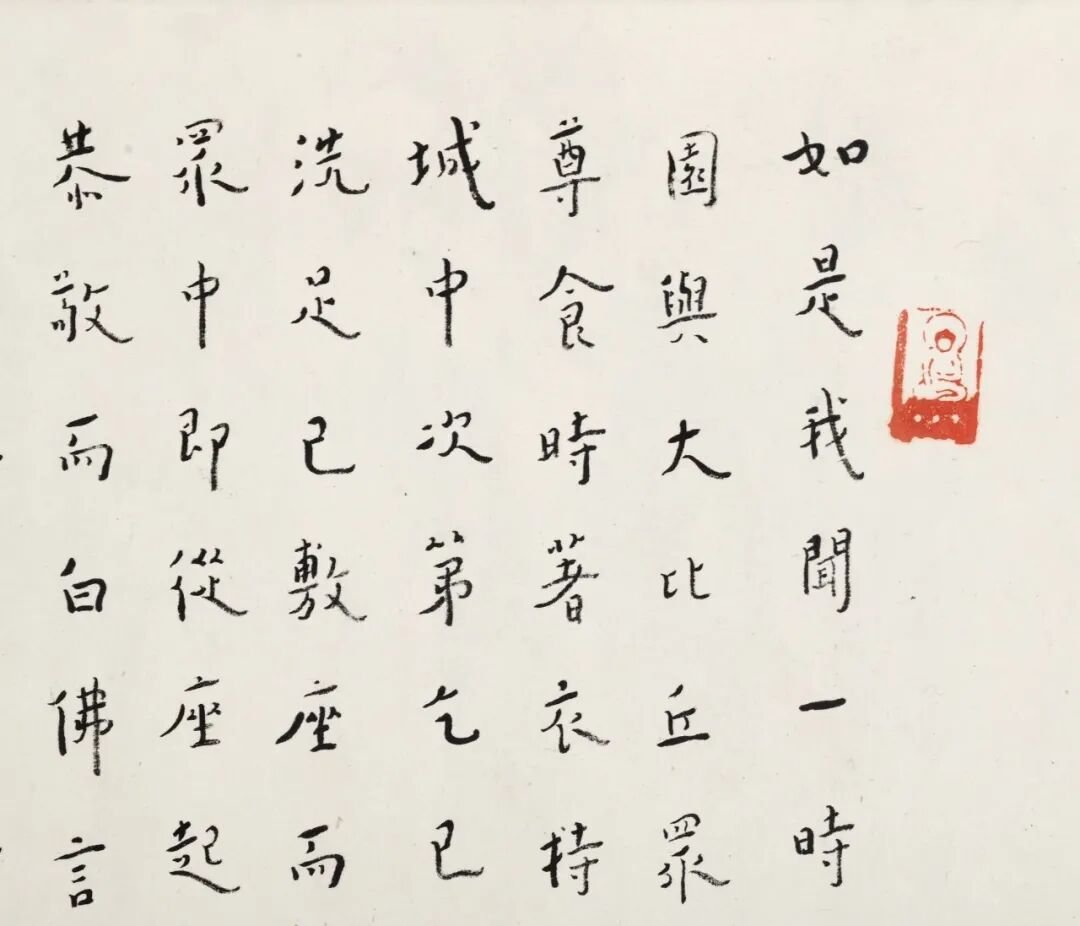 如是我聞一時
園與大比丘眾
尊食時著衣持
城中次第乞已
洗足已敷座而
眾中即從座起
恭敬而白佛言